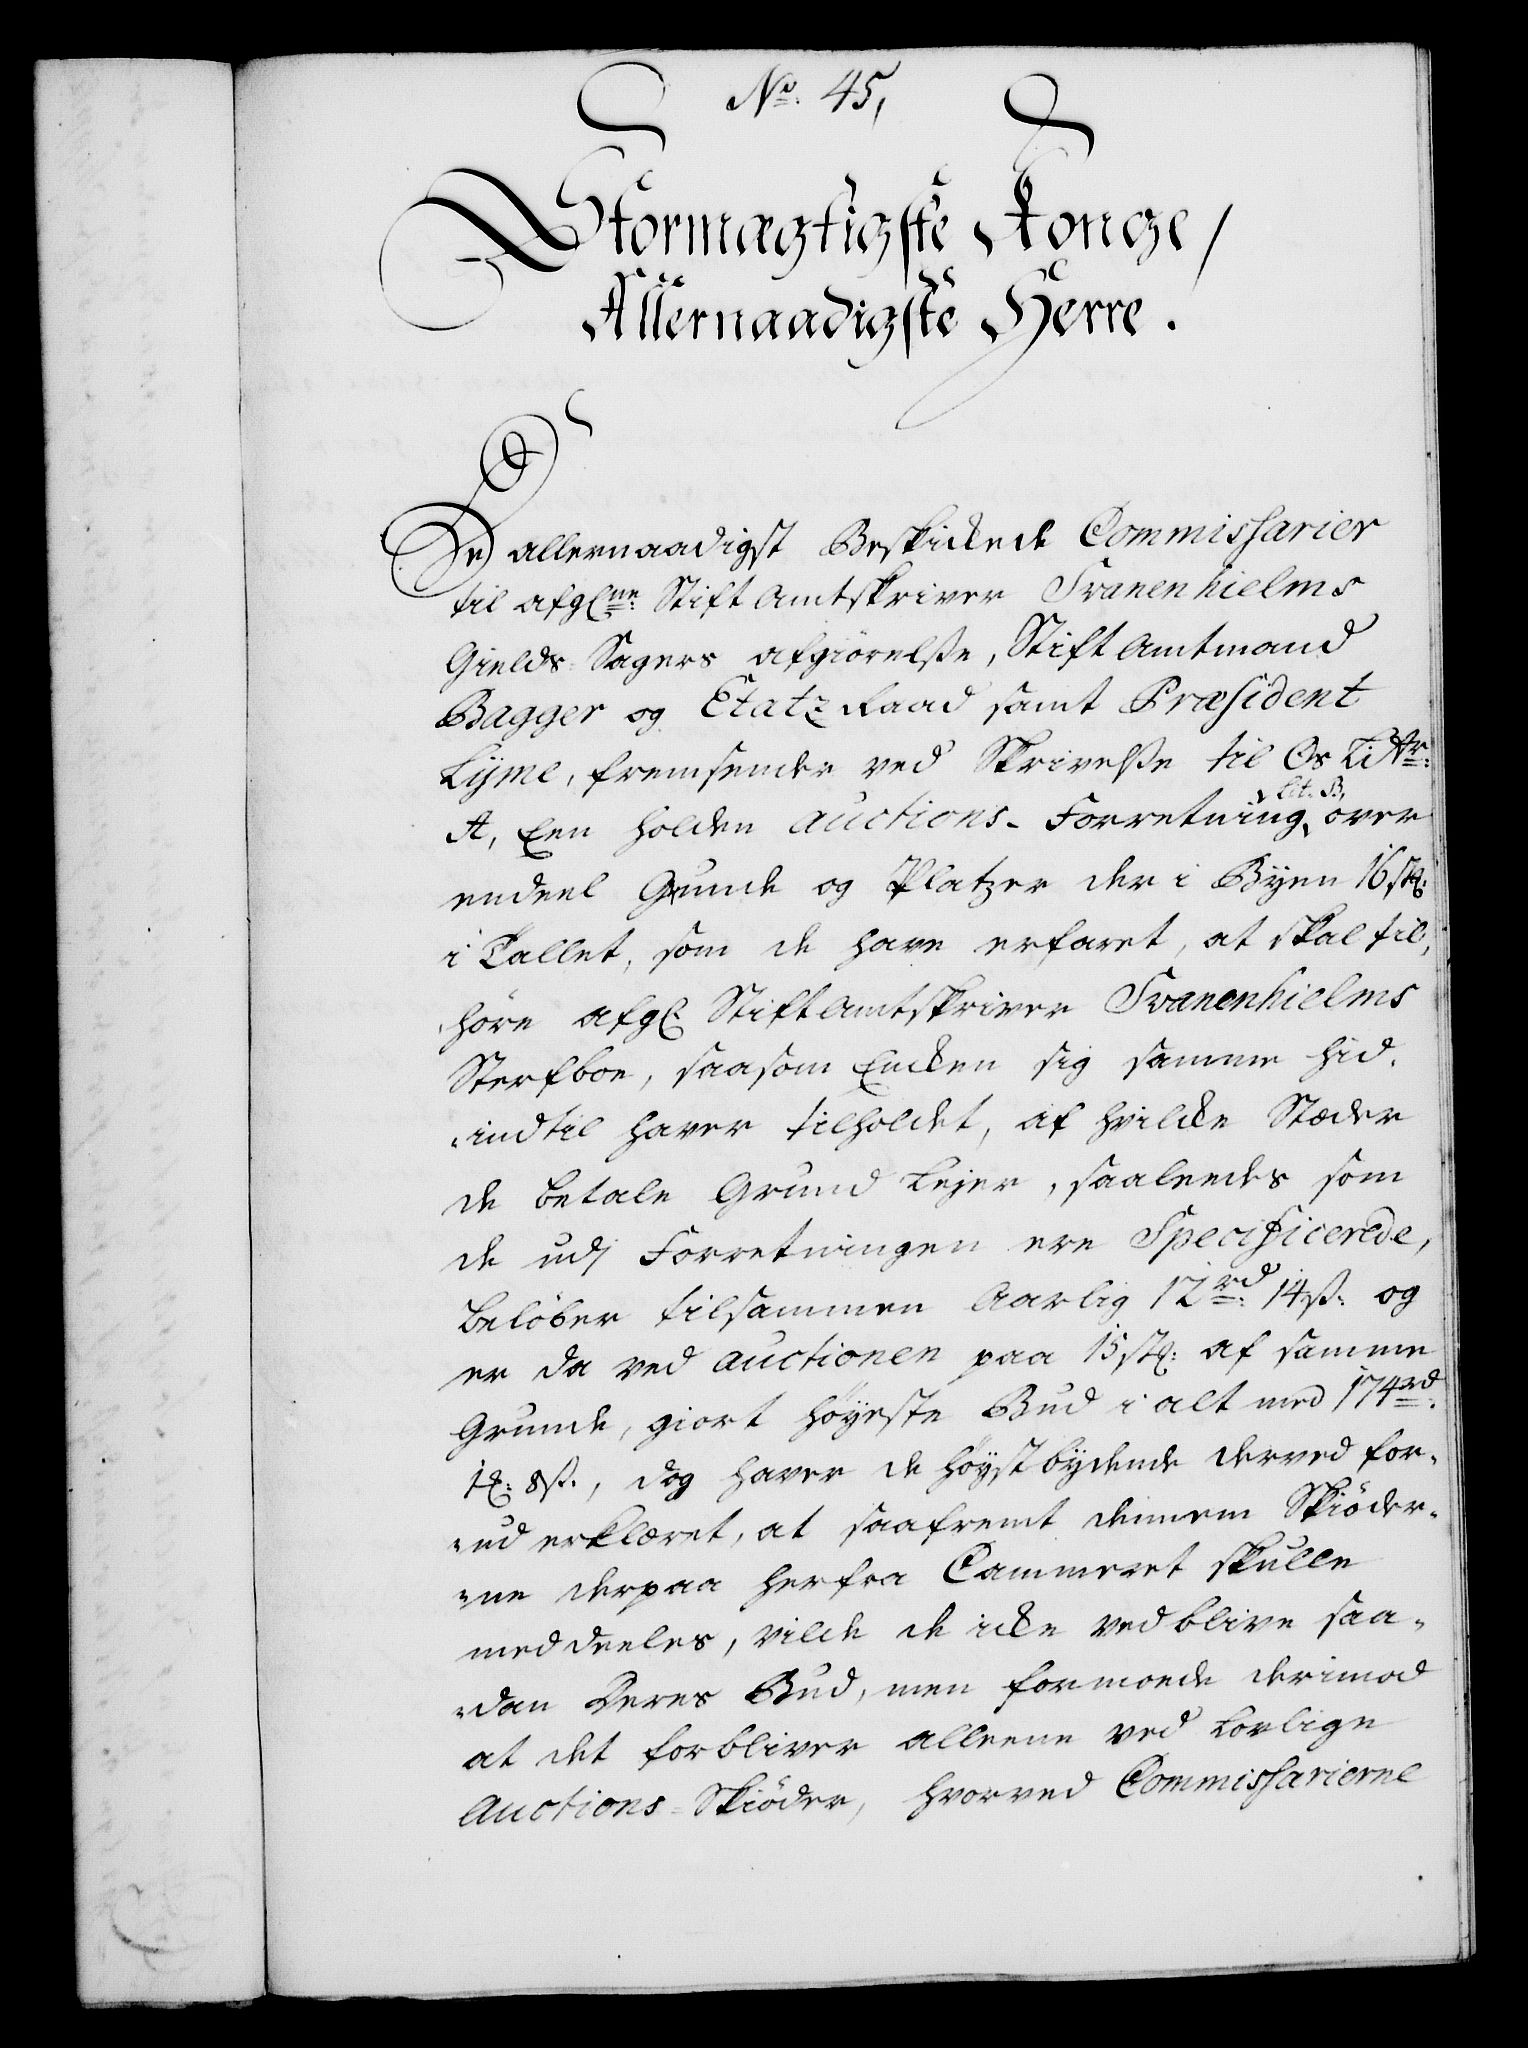 No. 45,
Stormægtigste Konge,
Allernaadigste Herre.
De allernaadigst Beskickede Commissarier
til afgl:ne Stift Amtskriver Svanenhielms
Gields-Sagers afgiørelsse, Stift Amtmand
Bagger og Etatz Raad samt Præsident
Lyme, fremsender ved Skrivelsse til Os Littr:
A, Een holden auctions-Forretning, Lit. B, over
endeel Grunde og Platzer der i Byen 16 stk:
i Tallet, som de have erfaret, at skal til,
høre afgl: Stift Amtskriver Svanenhielms
Sterfboe, saasom Encken sig samme hid-
indtil haver tilholdet, af hvilcke Stæder
de betale Grund Lejer, saaleedes som
de udj Forretningen ere Specificerede,
beløber tilsammen Aarlig 12 rd: 14 s: og
er da ved auctionen paa 15 stk: af samme
Grunde, giort høyeste Bud i alt med 174 rd:
1 : 8 s., dog haver de høystbydende derved for-
ud erklæret, at saafremt dennem Skiøder-
ne derpaa herfra Cammeret skulle
meddeeles, vilde de icke ved blive saa-
dan Deres Bud, men formoede derimod
at det forbliver alleene ved Lovlige
Auctions-Skiøder, hvorved Commissarierne